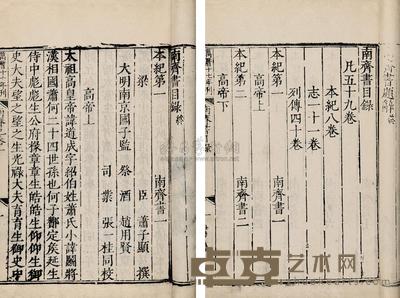 南齊書目錄
凡五十九卷
本紀八卷
志一十一卷
列傳四十卷
本紀第一 南齊書一
高帝上
本紀第二 南齊書二
高帝下
南齊書目錄 終
本紀第一 南齊書一
梁 臣 蕭子顯 撰
大明南京國子監 祭酒 趙用賢
司業 張一桂同校
高帝上
太祖高皇帝諱道成字紹伯姓蕭氏小諱鬬將
漢相國蕭何二十四世孫也何子酇定矦延生
侍中彪彪生公府掾章章生皓皓生仰仰生御
史大夫望之望之生光祿大夫育育生御史中
卓克艺术网